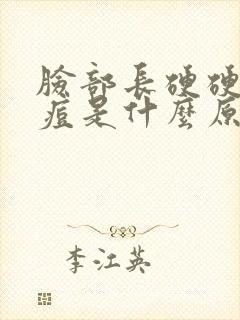 臉部長硬硬
痘是什麼原
李江英